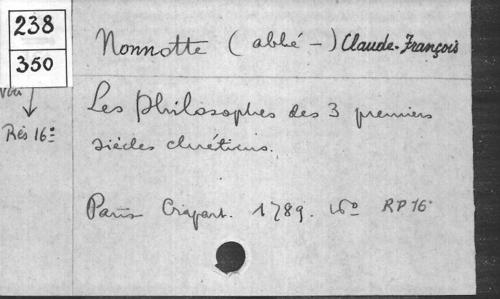 238
350
Nonnotte (abbé -) Claude-François
Voir
Rés 16º
Les Philosophes des 3 premiers
siècles chrétiens.
Paris Crapart. 1789. 16º RP 16º